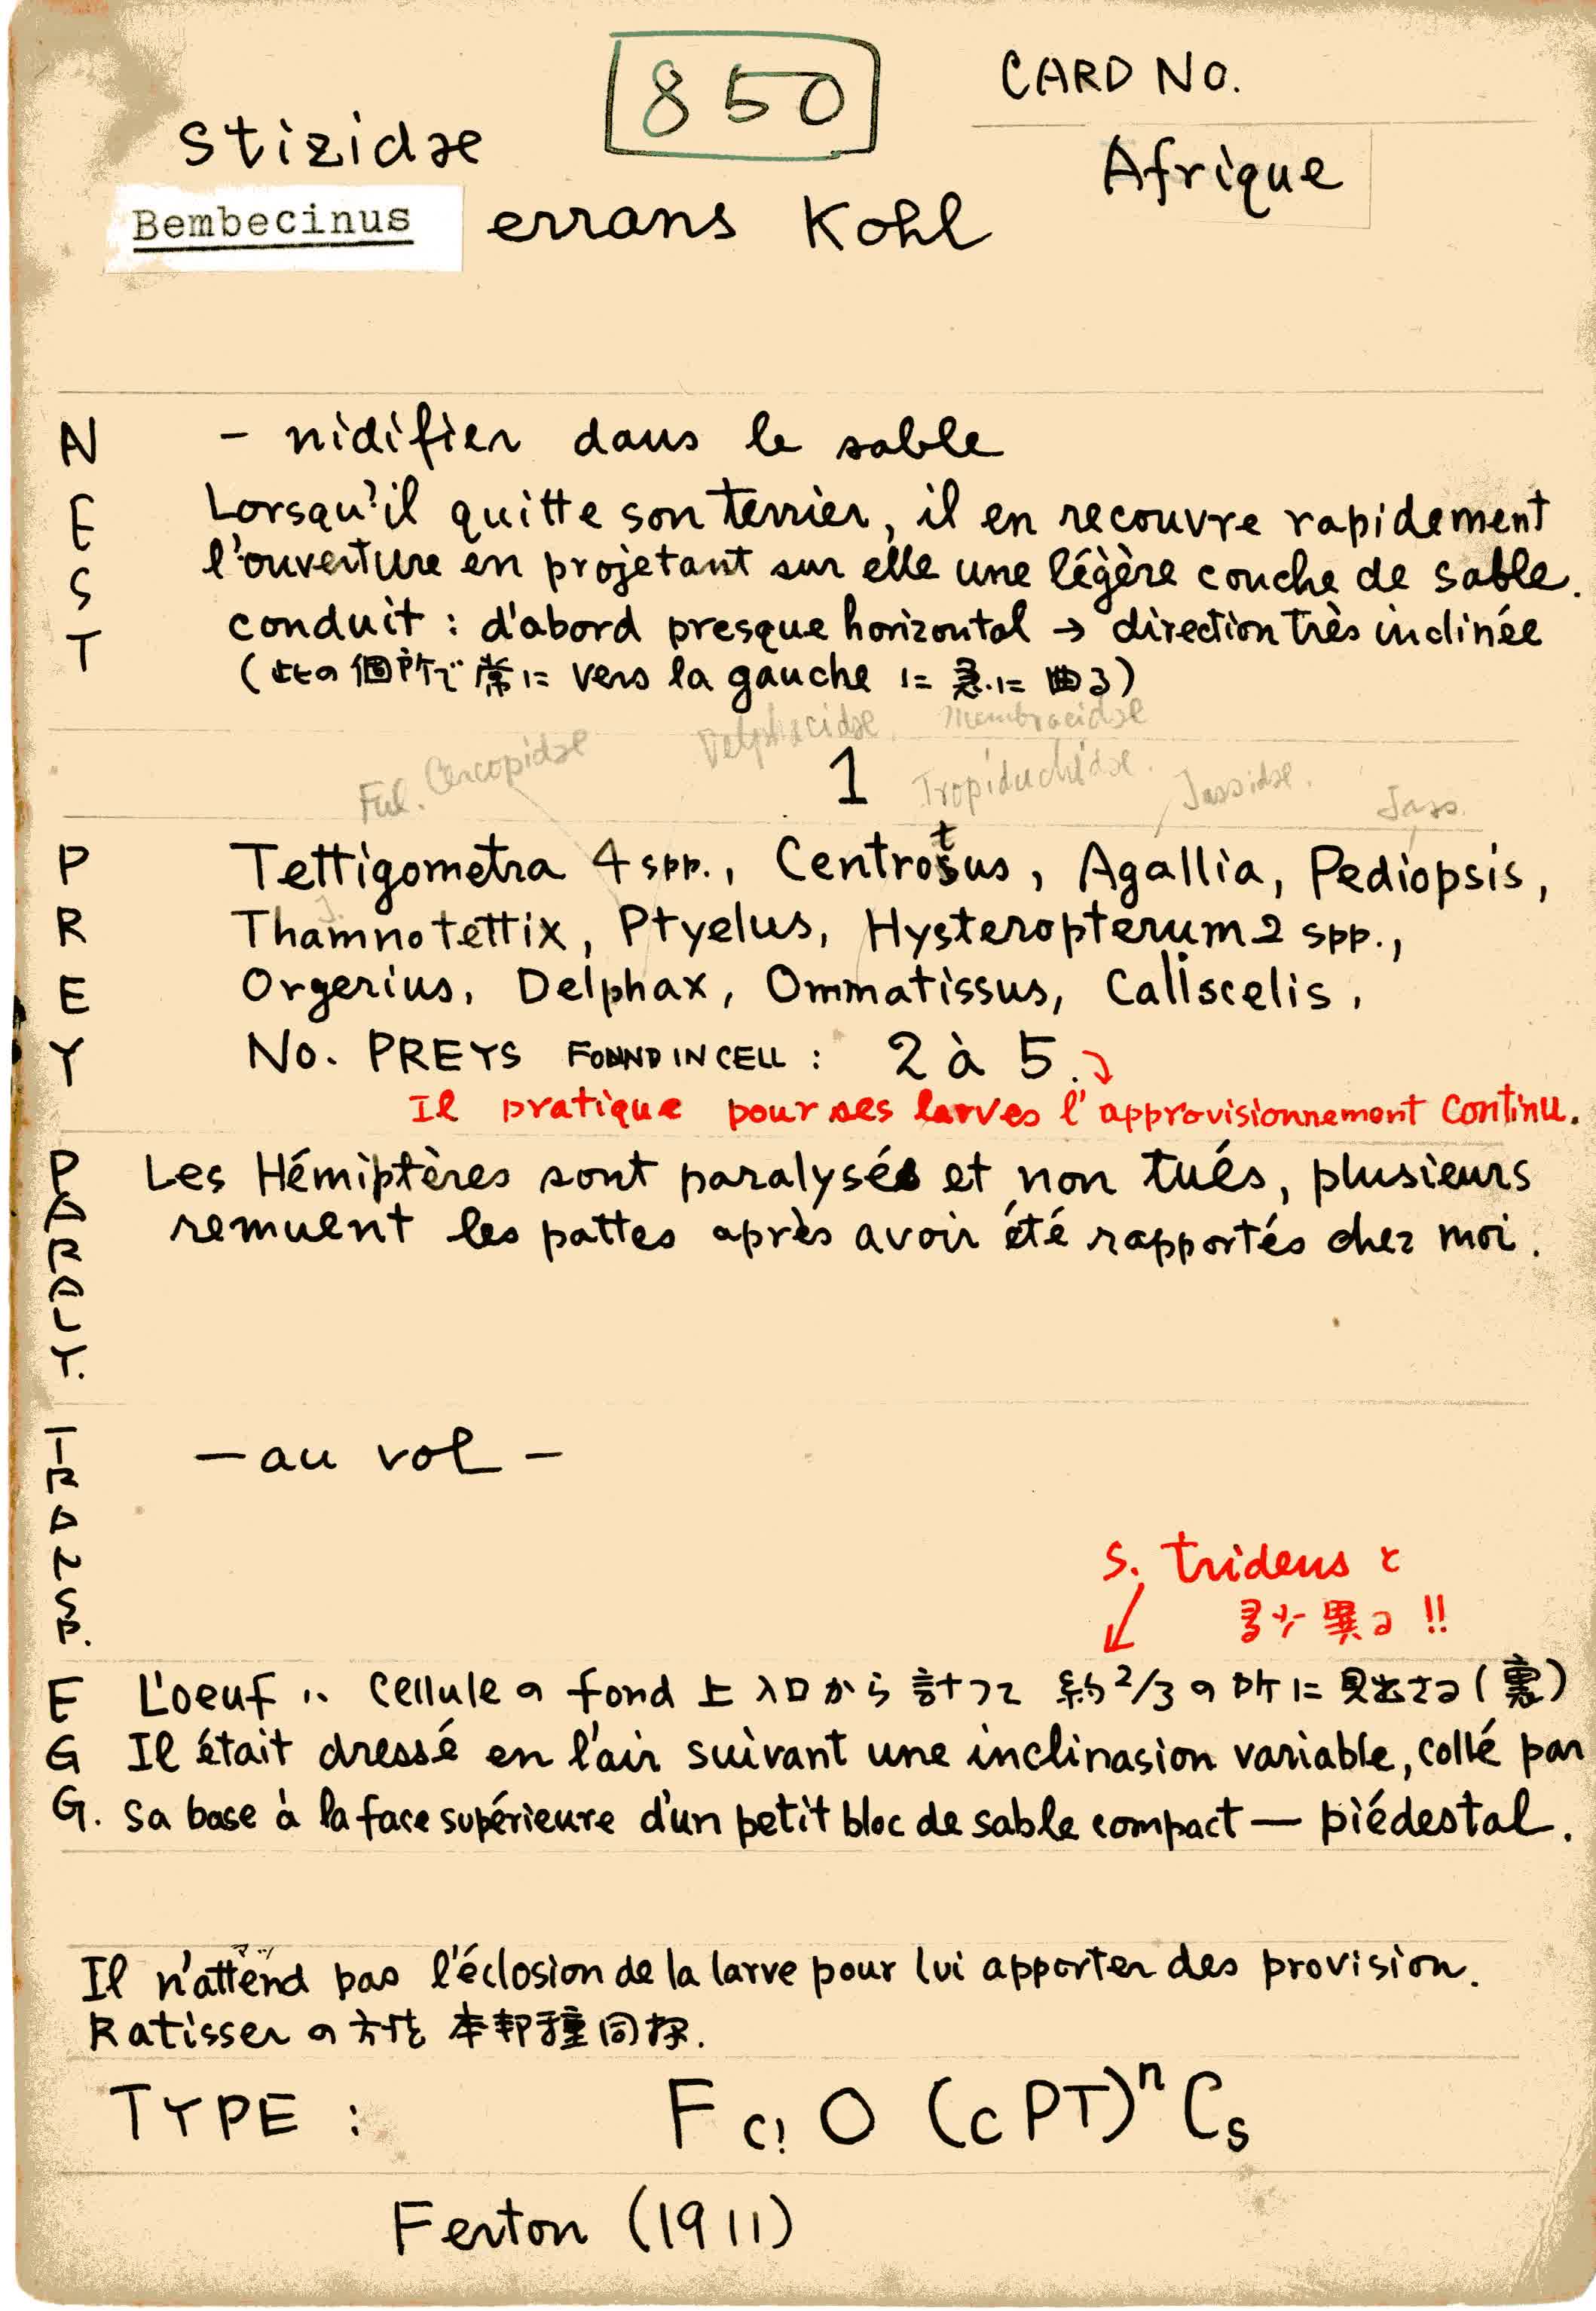 850
CARD NO.
Stizidae
Afrique
Bembecinus errans Kohl
NEST
- nidifier dans le sable
Lorsqu'il quitte son terrier, il en recouvre rapidement
l'ouverture en projetant sur elle une légère couche de sable.
conduit : d'abord presque horizontal → direction très inclinée
(此の個所で常に vers la gauche に急に曲る)
Delphacidae. Membracidae
Ful. Cercopidae
1
Tropiduchidae. Jassidae. Jass.
PREY
Tettigometra 4 spp., Centrotus, Agallia, Pediopsis,
J.
Thamnotettix, Ptyelus, Hysteropterum 2 spp.,
Orgerius, Delphax, Ommatissus, Caliscelis,
No. PREYS FOUND IN CELL : 2 à 5.
Il pratique pour ses larves l'approvisionnement continu.
PARALY.
Les Hémiptères sont paralysés et non tués, plusieurs
remuent les pattes après avoir été rapportés chez moi.
TRANSP.
— au vol —
S. tridens と
多少異る !!
EGG.
L'oeuf ハ cellule の fond 上入口から計つて約 2/3 の所に見出さる(裏)
Il était dressé en l'air suivant une inclinasion variable, collé par
sa base à la face supérieure d'un petit bloc de sable compact — piédestal.
Il n'attend pas l'éclosion de la larve pour lui apporter des provision.
Ratisser の方法本邦種同様.
TYPE : F c! O (c PT)ⁿ Cs
Ferton (1911)